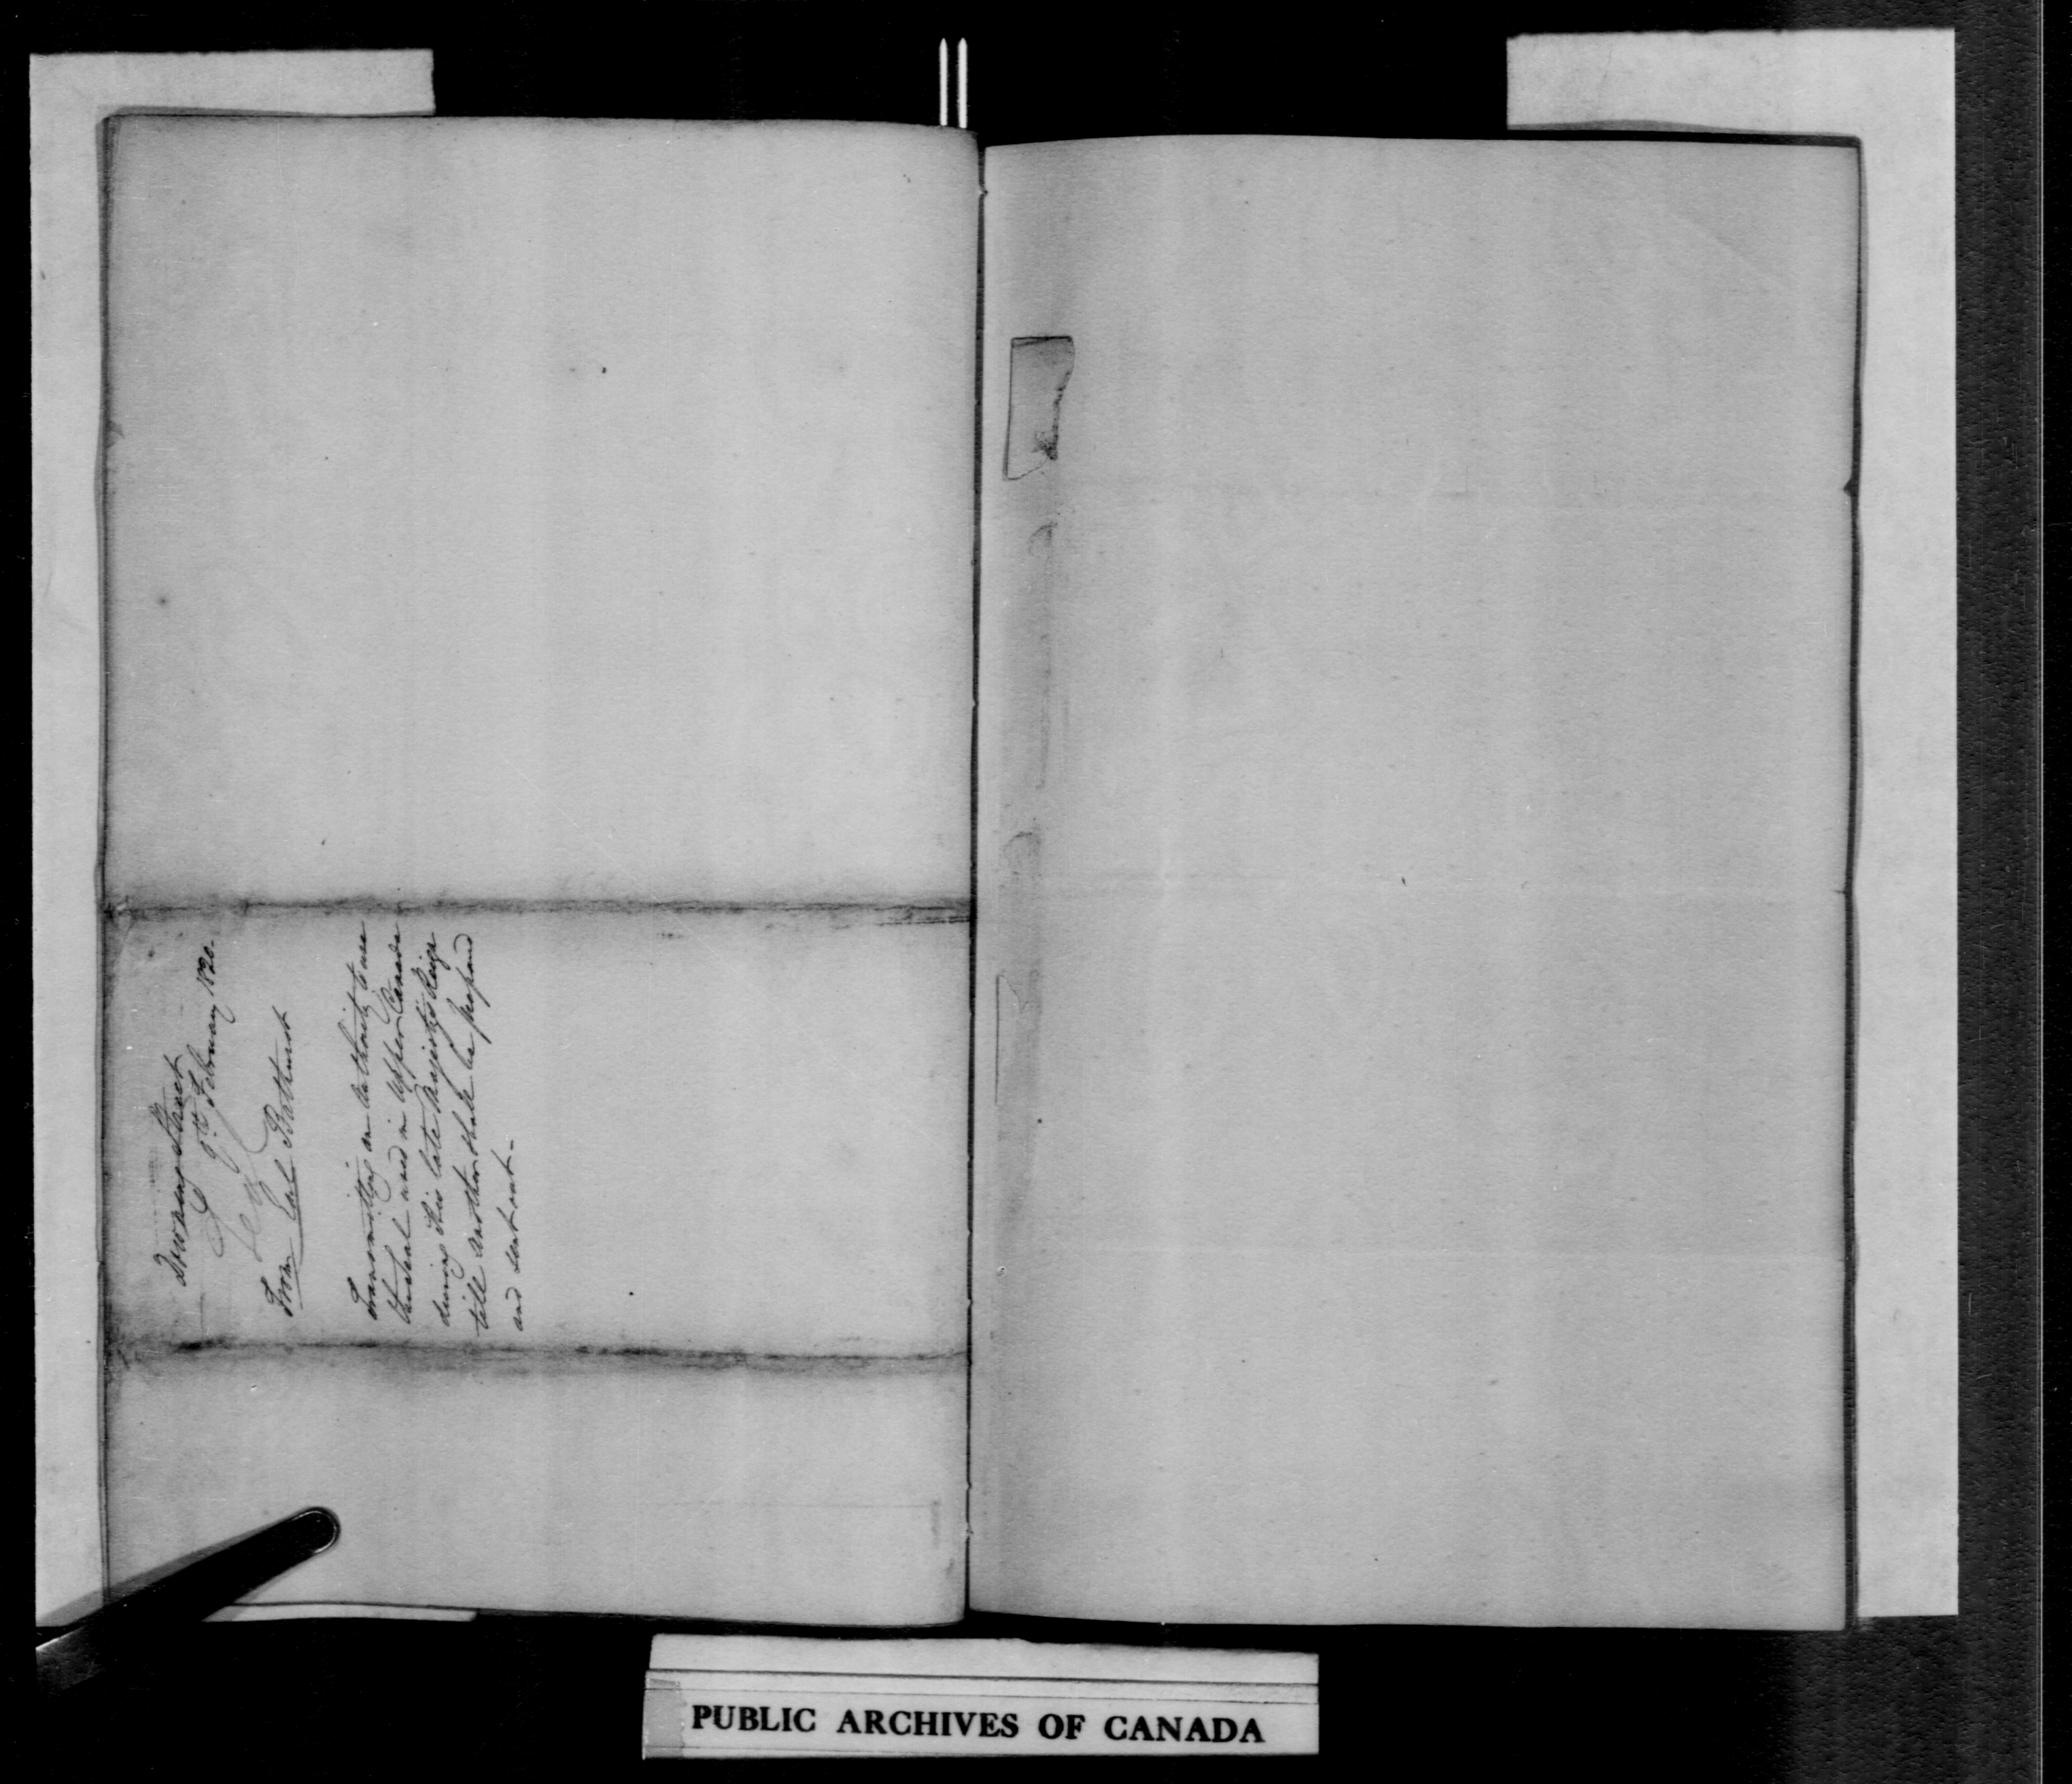 Downing Street
9th February 1820.
From Earl Bathurst
Transmitting an Authority to use
the Seal used in Upper Canada
during His late Majesty's Reign
till another shall be prepared
and sent out -
PUBLIC ARCHIVES OF CANADA